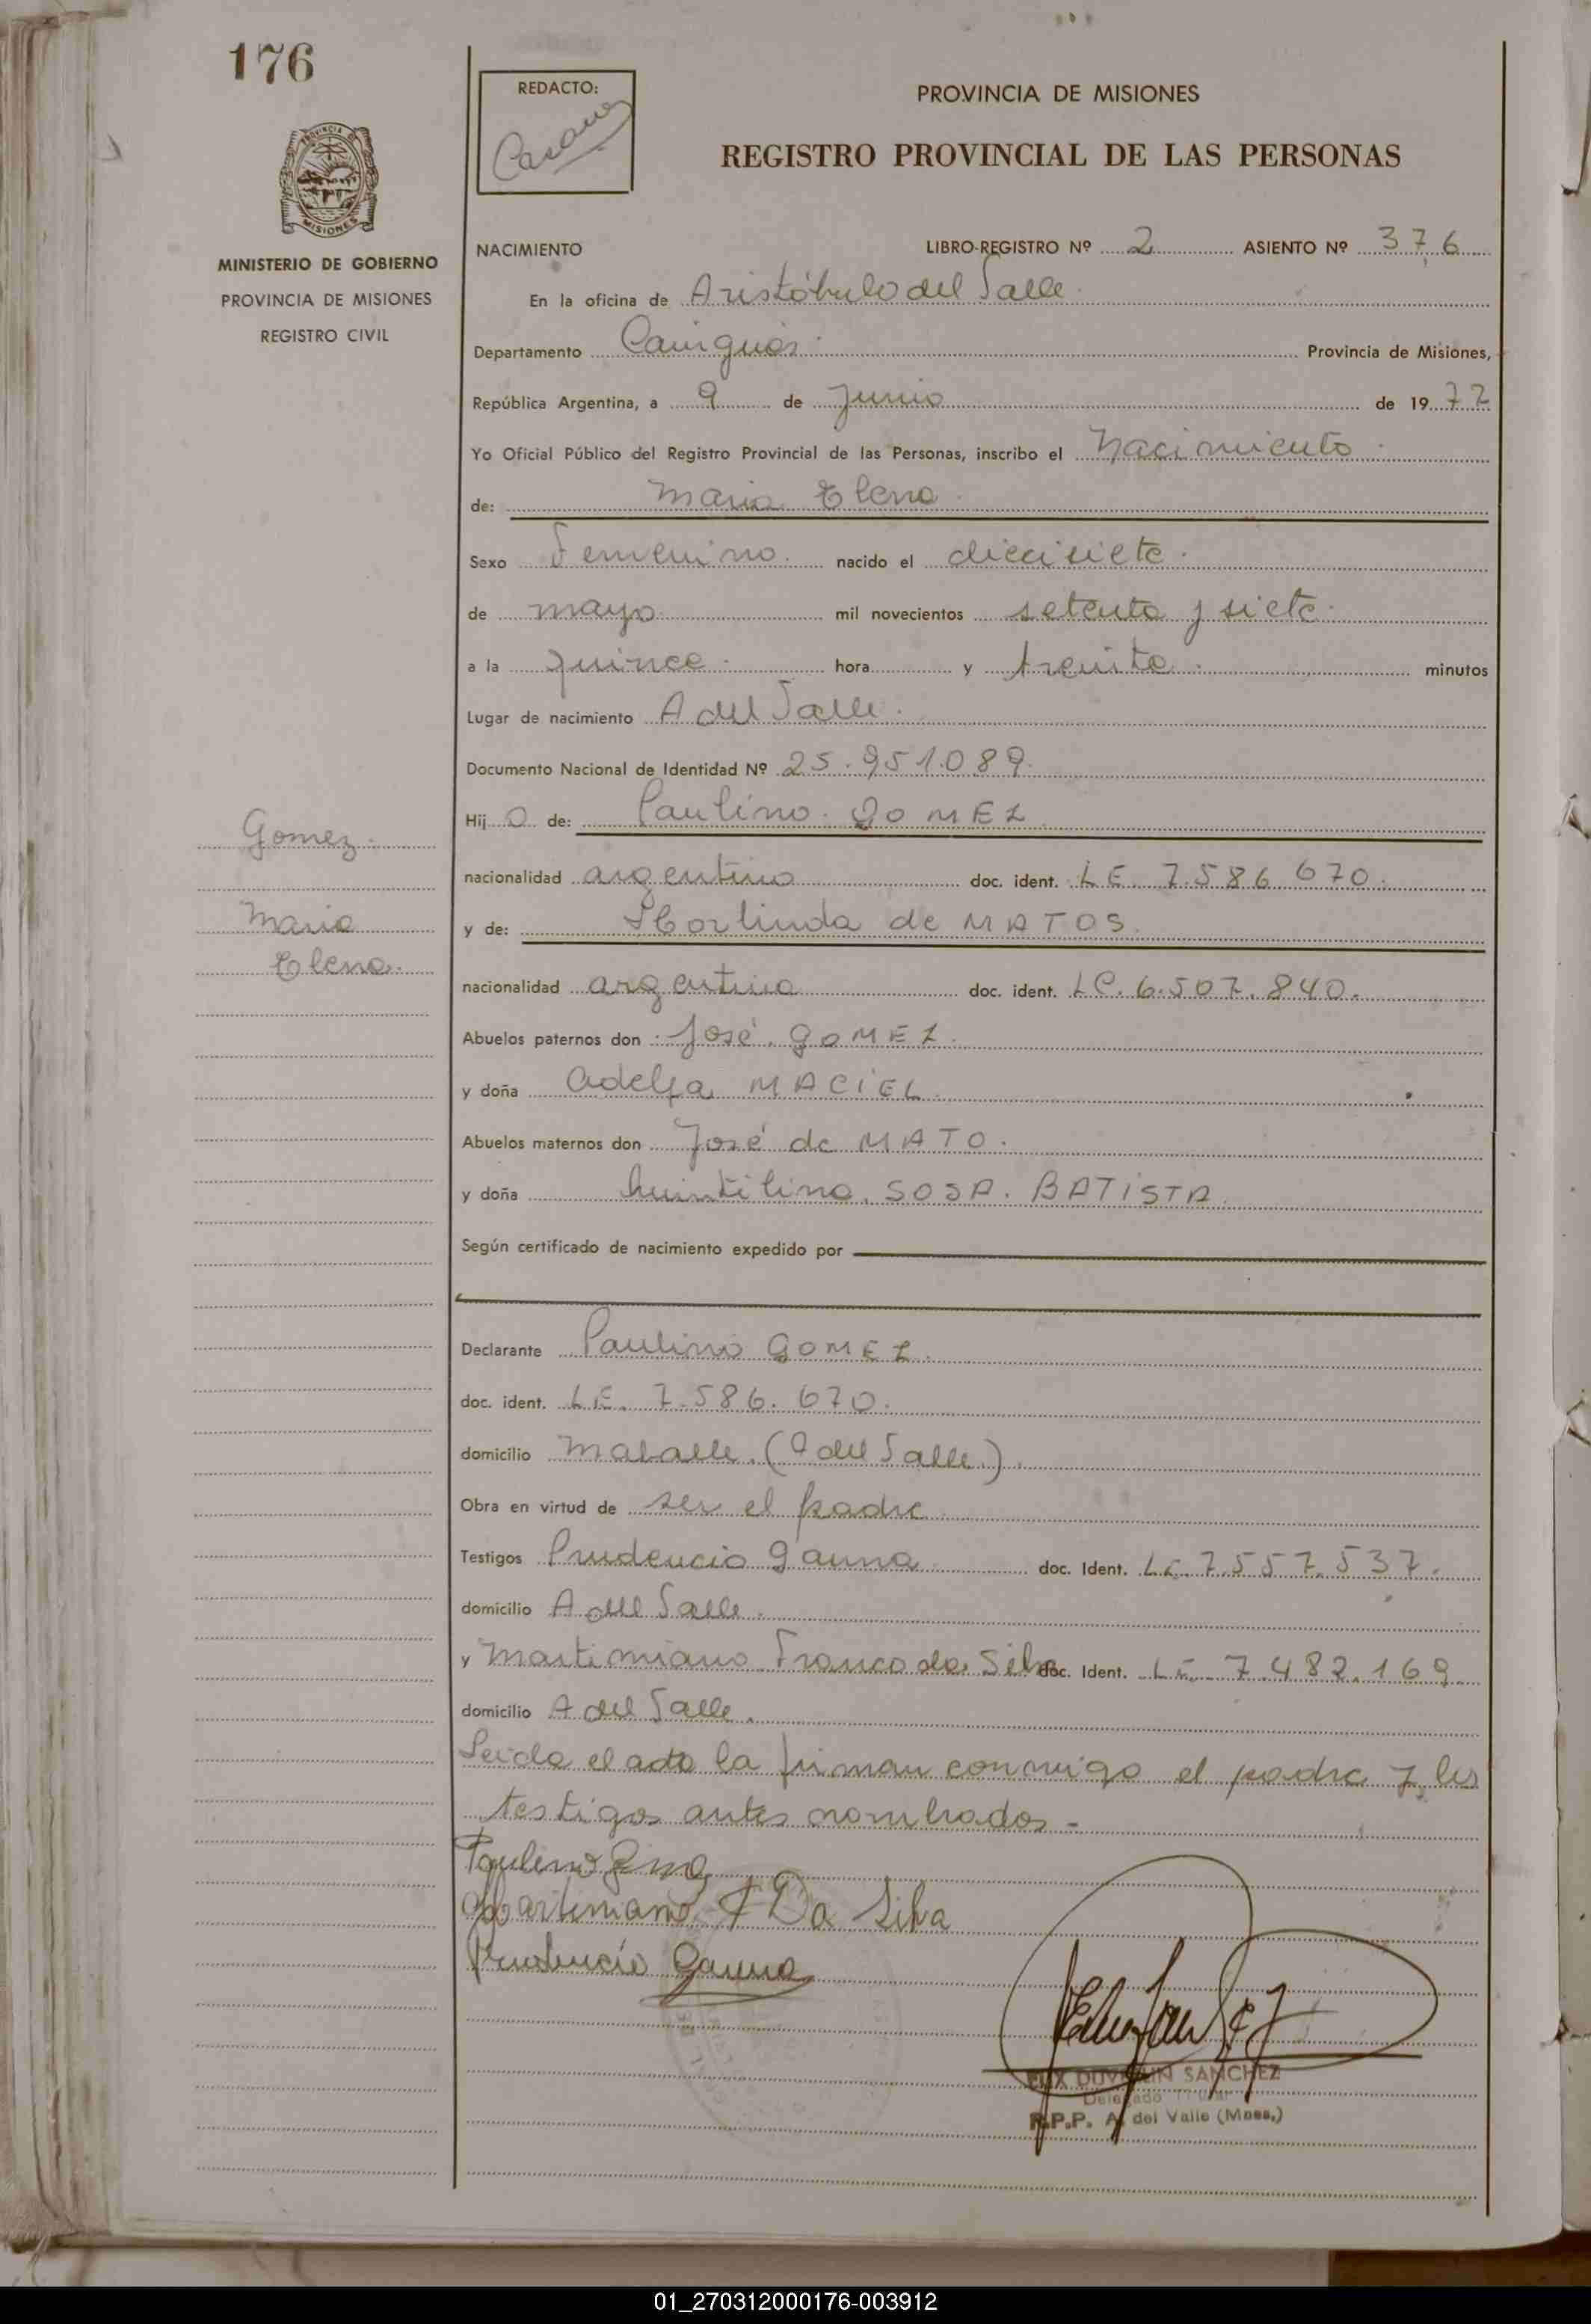 176
REDACTO:
PROVINCIA DE MISIONES
REGISTRO PROVINCIAL DE LAS PERSONAS
MINISTERIO DE GOBIERNO
PROVINCIA DE MISIONES
REGISTRO CIVIL
NACIMIENTO LIBRO-REGISTRO Nº 2 ASIENTO Nº 376
En la oficina de Aristóbulo del Valle
Departamento Cainguás Provincia de Misiones,
República Argentina, a 9 de Junio de 1972
Yo Oficial Público del Registro Provincial de las Personas, inscribo el Nacimiento
de: Maria Elena
Sexo Femenino nacido el diecisiete
de mayo mil novecientos setenta y siete
a la quince hora y treinta minutos
Lugar de nacimiento A del Valle
Documento Nacional de Identidad Nº 25.951.089
Hij a de: Paulino GOMEZ
nacionalidad argentino doc. ident. LE 7.586.670
y de: Horlinda de MATOS
nacionalidad argentina doc. ident. LC. 6.507.840.
Abuelos paternos don José GOMEZ
y doña Adelfa MACIEL
Abuelos maternos don José de MATO.
y doña SOSA BATISTA
Según certificado de nacimiento expedido por
Declarante Paulino GOMEZ.
doc. ident. LE. 7.586.670.
domicilio (A del Valle)
Obra en virtud de ser el padre
Testigos Prudencio Gauna doc. Ident. LE. 7.557.537.
domicilio A del Valle.
y Martimiano Franco da Silva doc. Ident. LE 7.482.169
domicilio A del Valle.
Leida el acta la firman conmigo el padre y los
testigos antes nombrados -
Martimiano F Da Silva
Prudencio Gauna
SANCHEZ
Delegado
R.P.P. A. del Valle (Mnes.)
Gomez
Maria
Elena.
01_270312000176-003912